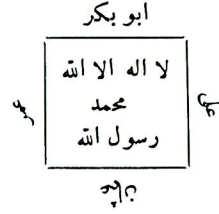 ابو بكر
لا اله الا الله
محمد
رسول الله
عمر
على
عثمان